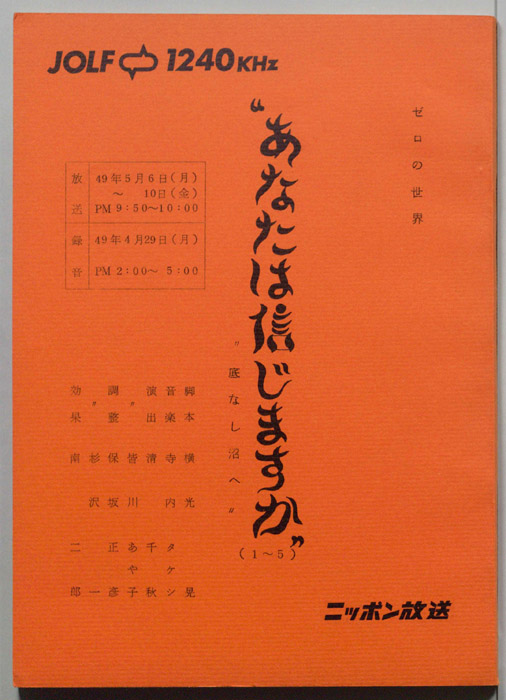 JOLF 1240KHz
ゼロの世界
“あなたは信じますか”
〃底なし沼へ〃
(1〜5)
放送 49年5月6日(月)
〜 10日(金)
PM 9:50〜10:00
録音 49年4月29日(月)
PM 2:00〜 5:00
脚本 横光晃
音楽 寺内タケシ
演出 清千秋
〃 皆川あや子
調整 保坂正彦
〃 杉沢一
効果 南二郎
ニッポン放送